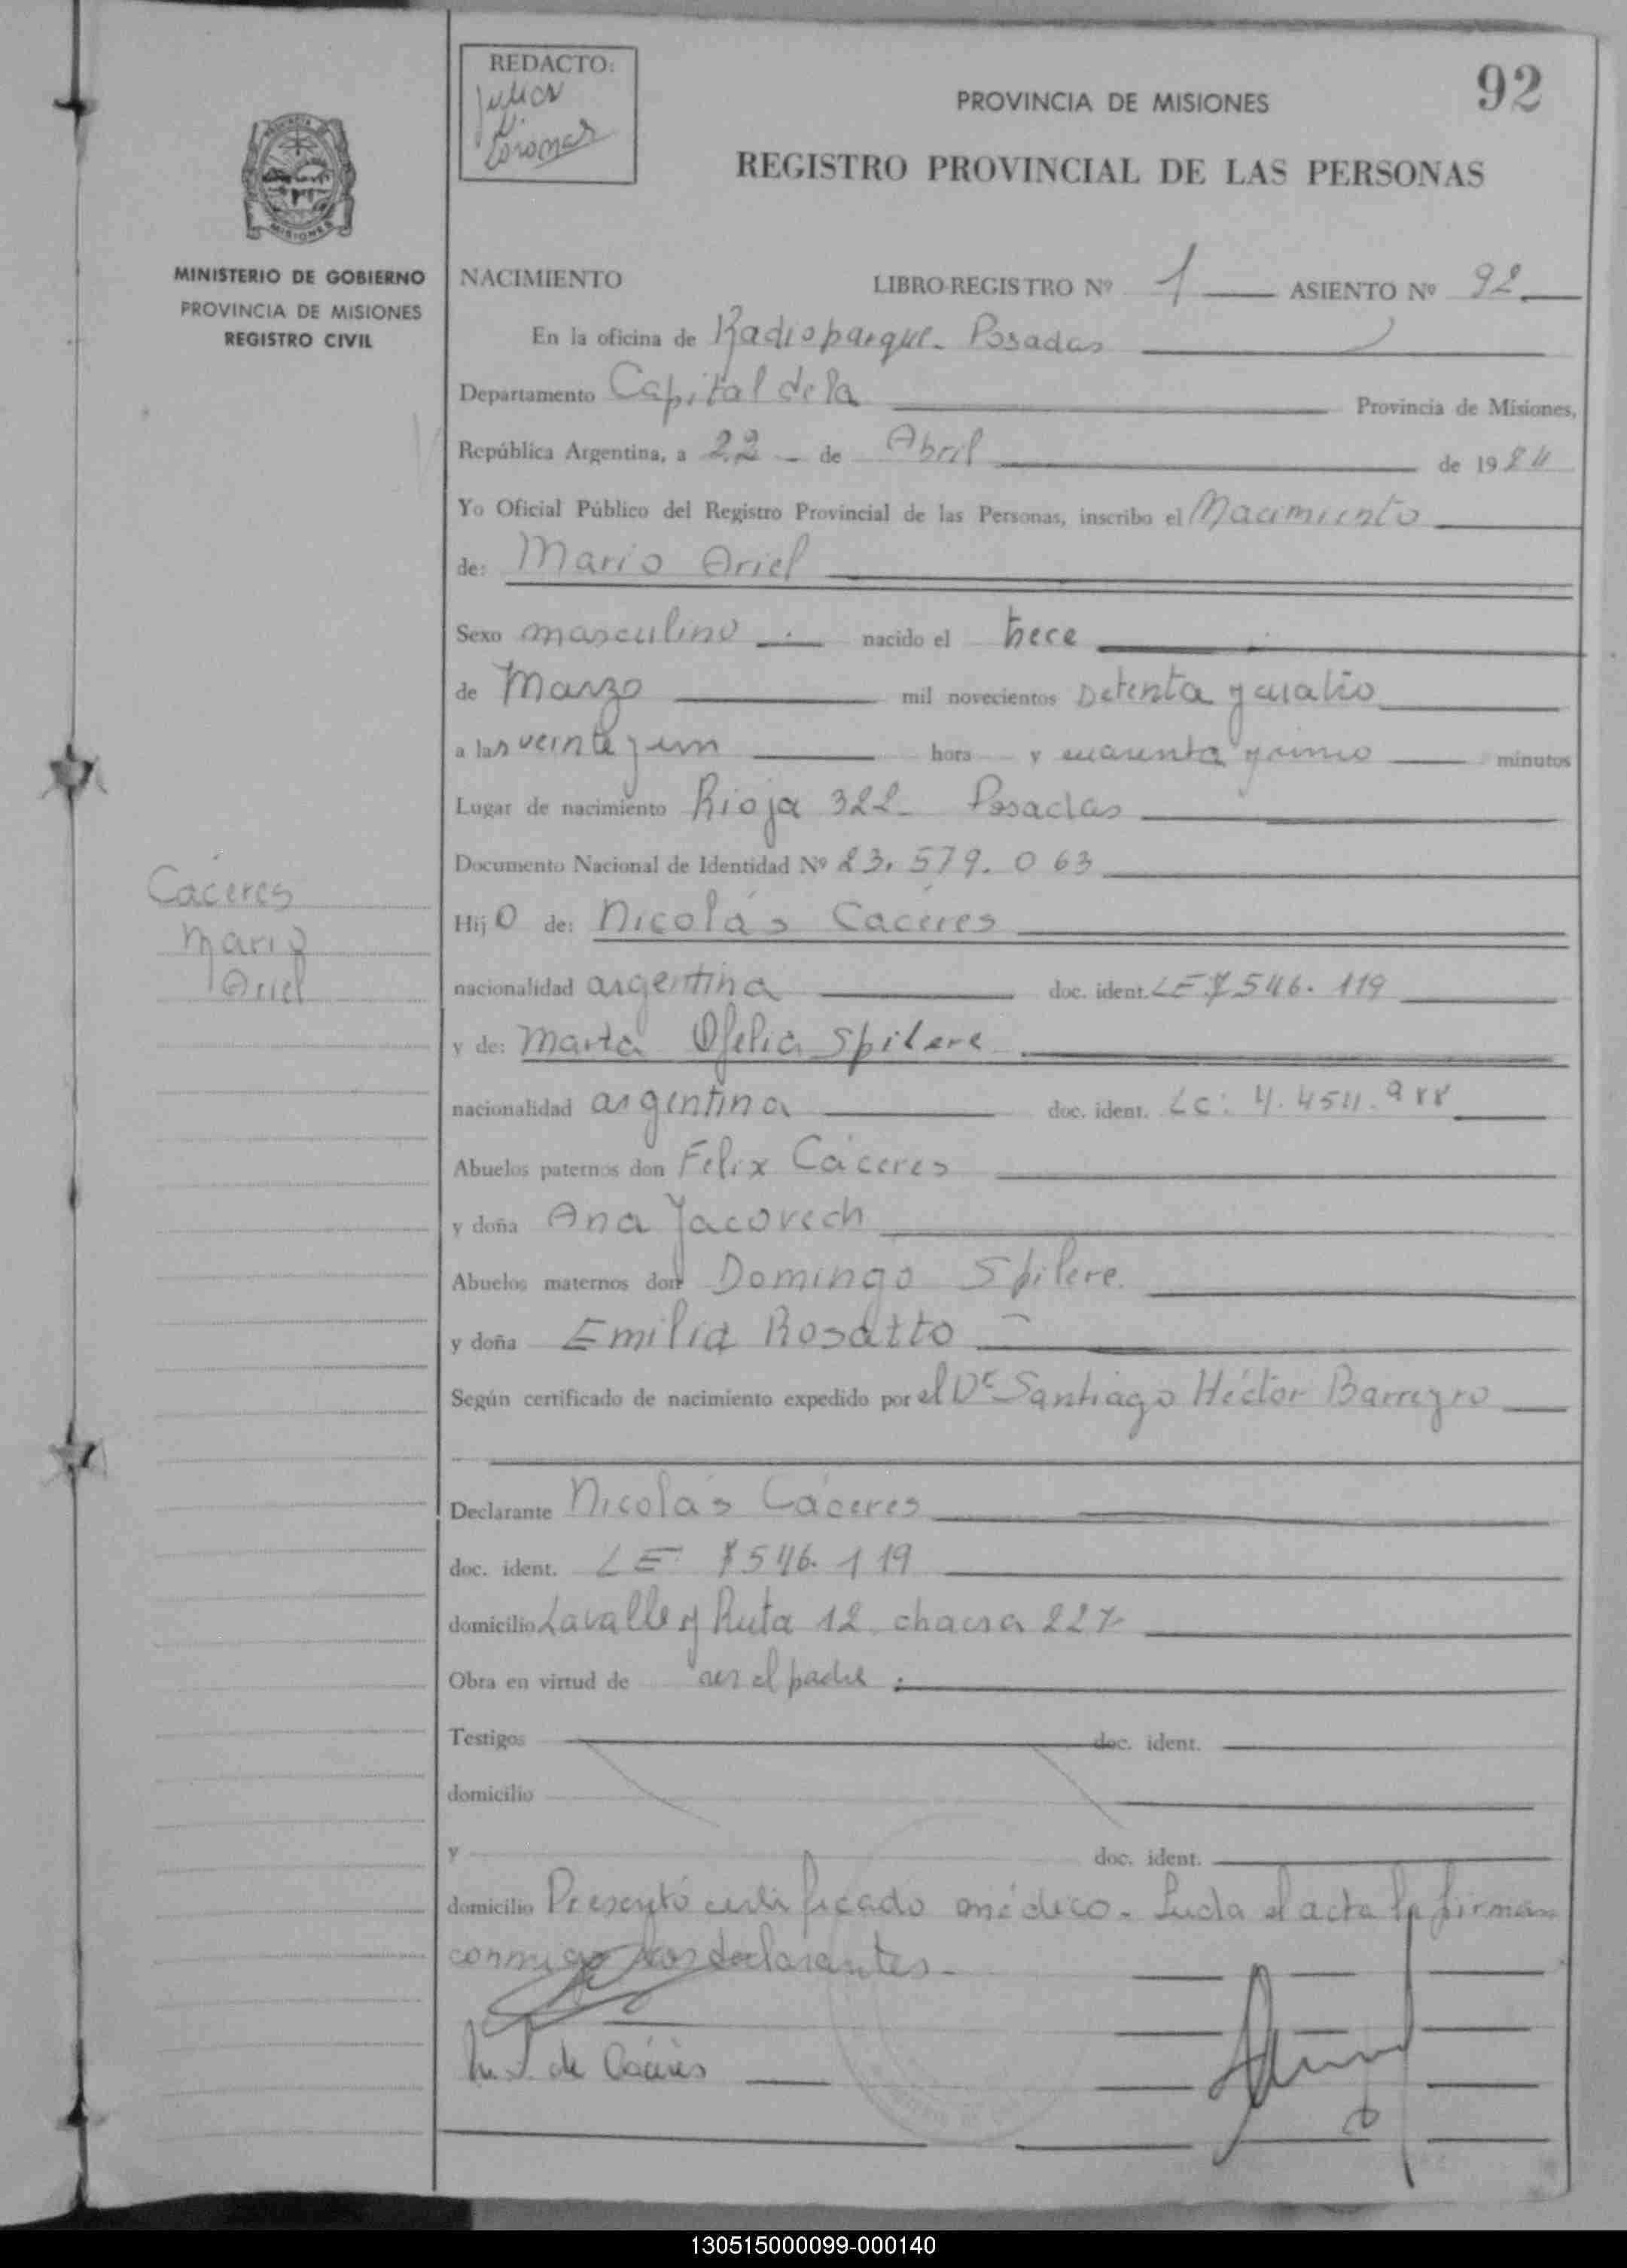 REDACTO:
Julior
92
PROVINCIA DE MISIONES
REGISTRO PROVINCIAL DE LAS PERSONAS
PROVINCIA DE
MISIONES
MINISTERIO DE GOBIERNO
PROVINCIA DE MISIONES
REGISTRO CIVIL
NACIMIENTO LIBRO-REGISTRO Nº 1 ASIENTO Nº 92
En la oficina de Radioparque - Posadas
Departamento Capital de la Provincia de Misiones,
República Argentina, a 22 - de Abril de 1974
Yo Oficial Público del Registro Provincial de las Personas, inscribo el Nacimiento
de: Mario Ariel
Sexo masculino nacido el trece
de Marzo mil novecientos setenta y cuatro
a las veinte y un hora y cuarenta y cinco minutos
Lugar de nacimiento Rioja 322 - Posadas
Documento Nacional de Identidad Nº 23.579.063
Caceres
Mario
Ariel
Hijo de: Nicolás Caceres
nacionalidad argentina doc. ident. LE 7546.119
y de: Marta Ofelia Spilere
nacionalidad argentina doc. ident. LC: 4.454.988
Abuelos paternos don Felix Cáceres
y doña Ana Jacovech
Abuelos maternos don Domingo Spilere.
y doña Emilia Rosatto
Según certificado de nacimiento expedido por el Dr Santiago Héctor Barreyro
Declarante Nicolás Cáceres
doc. ident. LE 7546.119
domicilio Lavalle y Ruta 12. chacra 227
Obra en virtud de ser el padre.
Testigos doc. ident.
domicilio
y doc. ident.
domicilio Presentó certificado médico. Leida el acta la firman
conmigo los declarantes.
M. S. de Cáceres
130515000099-000140